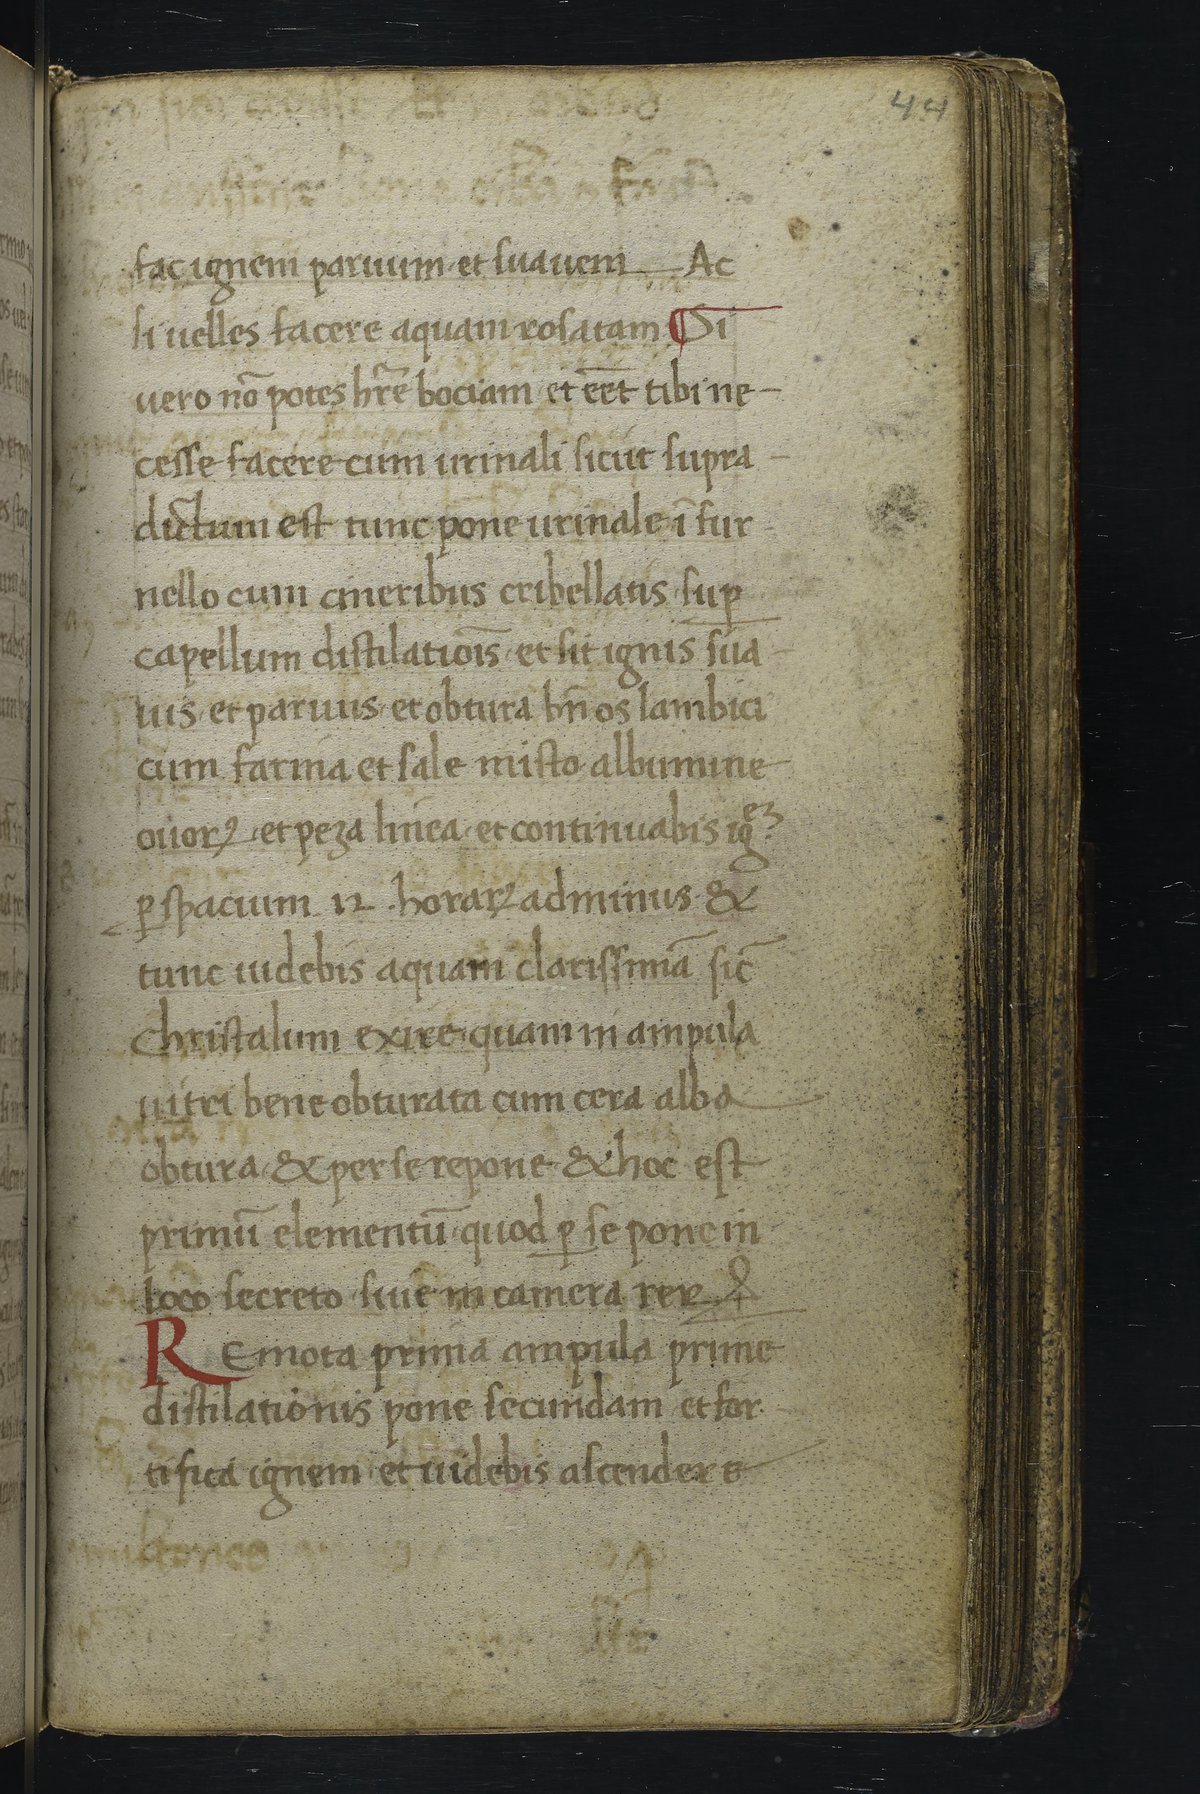 44
fac ignem paruum et suauem Ac
si uelles facere aquam rosatam ¶ Si
vero nō potes hr̄e bociam et eēt tibi ne-
cesse facere cum urinali sicut supra -
dictum est tunc pone urinale ī fur -
nello cum cineribus cribellatis sup̄
capellum distilatiōīs et sit ignis sua -
uis et paruus et obtura bn̄ os lambici
cum farina et sale misto albumine
ouorꝝ et peza linea et continuabis ig̃eꝫ
ꝑ spacium 12 horaꝝ ad minus &
tunc uidebis aquam clarissimā sic̄
christalum exire quam in ampula
uitri bene obturata cum cera alba
obtura & per se repone & hoc est
primū elementū quod ꝑ se pone in
loco secreto siue in camera
REmota prima ampula prime
distilationis pone secundam et for -
tifica ignem et uidebis ascendere